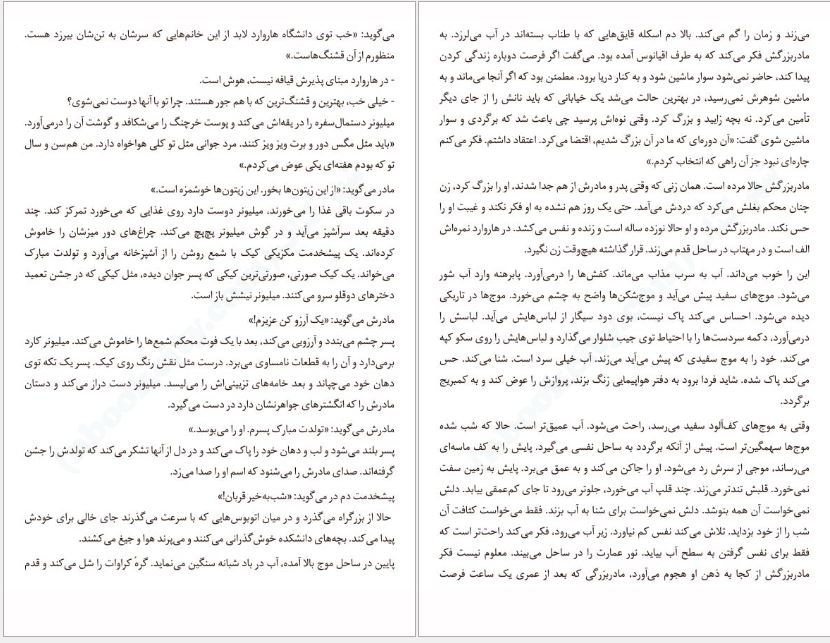 می‌گوید: «خب توی دانشگاه هاروارد لابد از این خانم‌هایی که سرشان به تن‌شان بیرزد هست.
منظورم از آن قشنگ‌هاست.»
- در هاروارد مبنای پذیرش قیافه نیست، هوش است.
- خیلی خب، بهترین و قشنگ‌ترین که با هم جور هستند. چرا تو با آنها دوست نمی‌شوی؟
میلیونر دستمال‌سفره را در یقه‌اش می‌کند و پوست خرچنگ را می‌شکافد و گوشت آن را درمی‌آورد.
«باید مثل مگس دور و برت ویز ویز کنند. مرد جوانی مثل تو کلی هواخواه دارد. من هم‌سن و سال
تو که بودم هفته‌ای یکی عوض می‌کردم.»
مادر می‌گوید: «از این زیتون‌ها بخور. این زیتون‌ها خوشمزه است.»
در سکوت باقی غذا را می‌خورند. میلیونر دوست دارد روی غذایی که می‌خورد تمرکز کند. چند
دقیقه بعد سرآشپز می‌آید و در گوش میلیونر پچ‌پچ می‌کند. چراغ‌های دور میزشان را خاموش
کرده‌اند. یک پیشخدمت مکزیکی کیک با شمع روشن را از آشپزخانه می‌آورد و تولدت مبارک
می‌خواند. یک کیک صورتی، صورتی‌ترین کیکی که پسر جوان دیده، مثل کیکی که در جشن تعمید
دخترهای دوقلو سرو می‌کنند. میلیونر نیشش باز است.
مادرش می‌گوید: «یک آرزو کن عزیزم!»
پسر چشم می‌بندد و آرزویی می‌کند، بعد با یک فوت محکم شمع‌ها را خاموش می‌کند. میلیونر کارد
برمی‌دارد و آن را به قطعات نامساوی می‌برد. درست مثل نقش رنگ روی کیک. پسر یک تکه توی
دهان خود می‌چپاند و بعد خامه‌های تزیینی‌اش را می‌لیسد. میلیونر دست دراز می‌کند و دستان
مادرش را که انگشترهای جواهرنشان دارد در دست می‌گیرد.
مادرش می‌گوید: «تولدت مبارک پسرم. او را می‌بوسد.»
پسر بلند می‌شود و لب و دهان خود را پاک می‌کند و در دل از آنها تشکر می‌کند که تولدش را جشن
گرفته‌اند. صدای مادرش را می‌شنود که اسم او را صدا می‌زد.
پیشخدمت دم در می‌گوید: «شب‌به‌خیر قربان!»
حالا از بزرگراه می‌گذرد و در میان اتوبوس‌هایی که با سرعت می‌گذرند جای خالی برای خودش
پیدا می‌کند. بچه‌های دانشکده خوش‌گذرانی می‌کنند و می‌پرند هوا و جیغ می‌کشند.
پایین در ساحل موج بالا آمده، آب در باد شبانه سنگین می‌نماید. گره کراوات را شل می‌کند و قدم
می‌زند و زمان را گم می‌کند. بالا دم اسکله قایق‌هایی که با طناب بسته‌اند در آب می‌لرزد. به
مادربزرگش فکر می‌کند که به طرف اقیانوس آمده بود. می‌گفت اگر فرصت دوباره زندگی کردن
پیدا کند، حاضر نمی‌شود سوار ماشین شود و به کنار دریا برود. مطمئن بود که اگر آنجا می‌ماند و به
ماشین شوهرش نمی‌رسید، در بهترین حالت می‌شد یک خیابانی که باید نانش را از جای دیگر
تأمین می‌کرد. نه بچه زایید و بزرگ کرد. وقتی نوه‌اش پرسید چی باعث شد که برگردی و سوار
ماشین شوی گفت: «آن دوره‌ای که ما در آن بزرگ شدیم، اقتضا می‌کرد. اعتقاد داشتم. فکر می‌کنم
چاره‌ای نبود جز آن راهی که انتخاب کردم.»
مادربزرگش حالا مرده است. همان زنی که وقتی پدر و مادرش از هم جدا شدند، او را بزرگ کرد، زن
چنان محکم بغلش می‌کرد که دردش می‌آمد. حتی یک روز هم نشده به او فکر نکند و غیبت او را
حس نکند. مادربزرگش مرده و او حالا نوزده ساله است و زنده و نفس می‌کشد. در هاروارد نمره‌اش
الف است و در مهتاب در ساحل قدم می‌زند. قرار گذاشته هیچ‌وقت زن نگیرد.
این را خوب می‌داند. آب به سرب مذاب می‌ماند. کفش‌ها را درمی‌آورد. پابرهنه وارد آب شور
می‌شود. موج‌های سفید پیش می‌آید و موج‌شکن‌ها واضح به چشم می‌خورد. موج‌ها در تاریکی
دیده می‌شود. احساس می‌کند پاک نیست، بوی دود سیگار از لباس‌هایش می‌آید. لباسش را
درمی‌آورد، دکمه سردست‌ها را با احتیاط توی جیب شلوار می‌گذارد و لباس‌هایش را روی سکو کپه
می‌کند. خود را به موج سفیدی که پیش می‌آید می‌زند. آب خیلی سرد است. شنا می‌کند. حس
می‌کند پاک شده. شاید فردا برود به دفتر هواپیمایی زنگ بزند، پروازش را عوض کند و به کمبریج
برگردد.
وقتی به موج‌های کف‌آلود سفید می‌رسد، راحت می‌شود. آب عمیق‌تر است. حالا که شب شده
موج‌ها سهمگین‌تر است. پیش از آنکه برگردد به ساحل نفسی می‌گیرد. پایش را به کف ماسه‌ای
می‌رساند، موجی از سرش رد می‌شود. او را جاکن می‌کند و به عمق می‌برد. پایش به زمین سفت
نمی‌خورد. قلبش تندتر می‌زند. چند قلپ آب می‌خورد، جلوتر می‌رود تا جای کم‌عمقی بیابد. دلش
نمی‌خواست آن همه بنوشد. دلش نمی‌خواست برای شنا به آب بزند. فقط می‌خواست کثافت آن
شب را از خود بزداید. تلاش می‌کند نفس کم نیاورد. زیر آب می‌رود، فکر می‌کند راحت‌تر است که
فقط برای نفس گرفتن به سطح آب بیاید. نور عمارت را در ساحل می‌بیند. معلوم نیست فکر
مادربزرگش از کجا به ذهن او هجوم می‌آورد، مادربزرگی که بعد از عمری یک ساعت فرصت